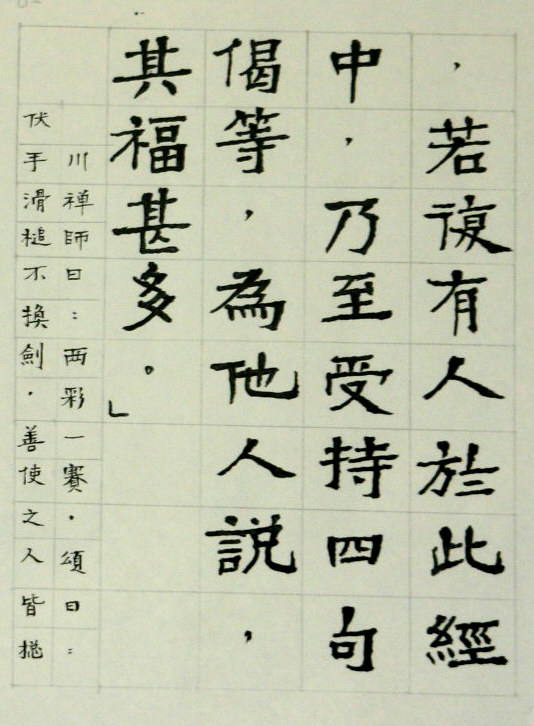 ，若復有人於此經
中，乃至受持四句
偈等，為他人說，
其福甚多。」
川禅師曰：兩彩一賽．頌曰：
伏手滑槌不換劍．善使之人皆